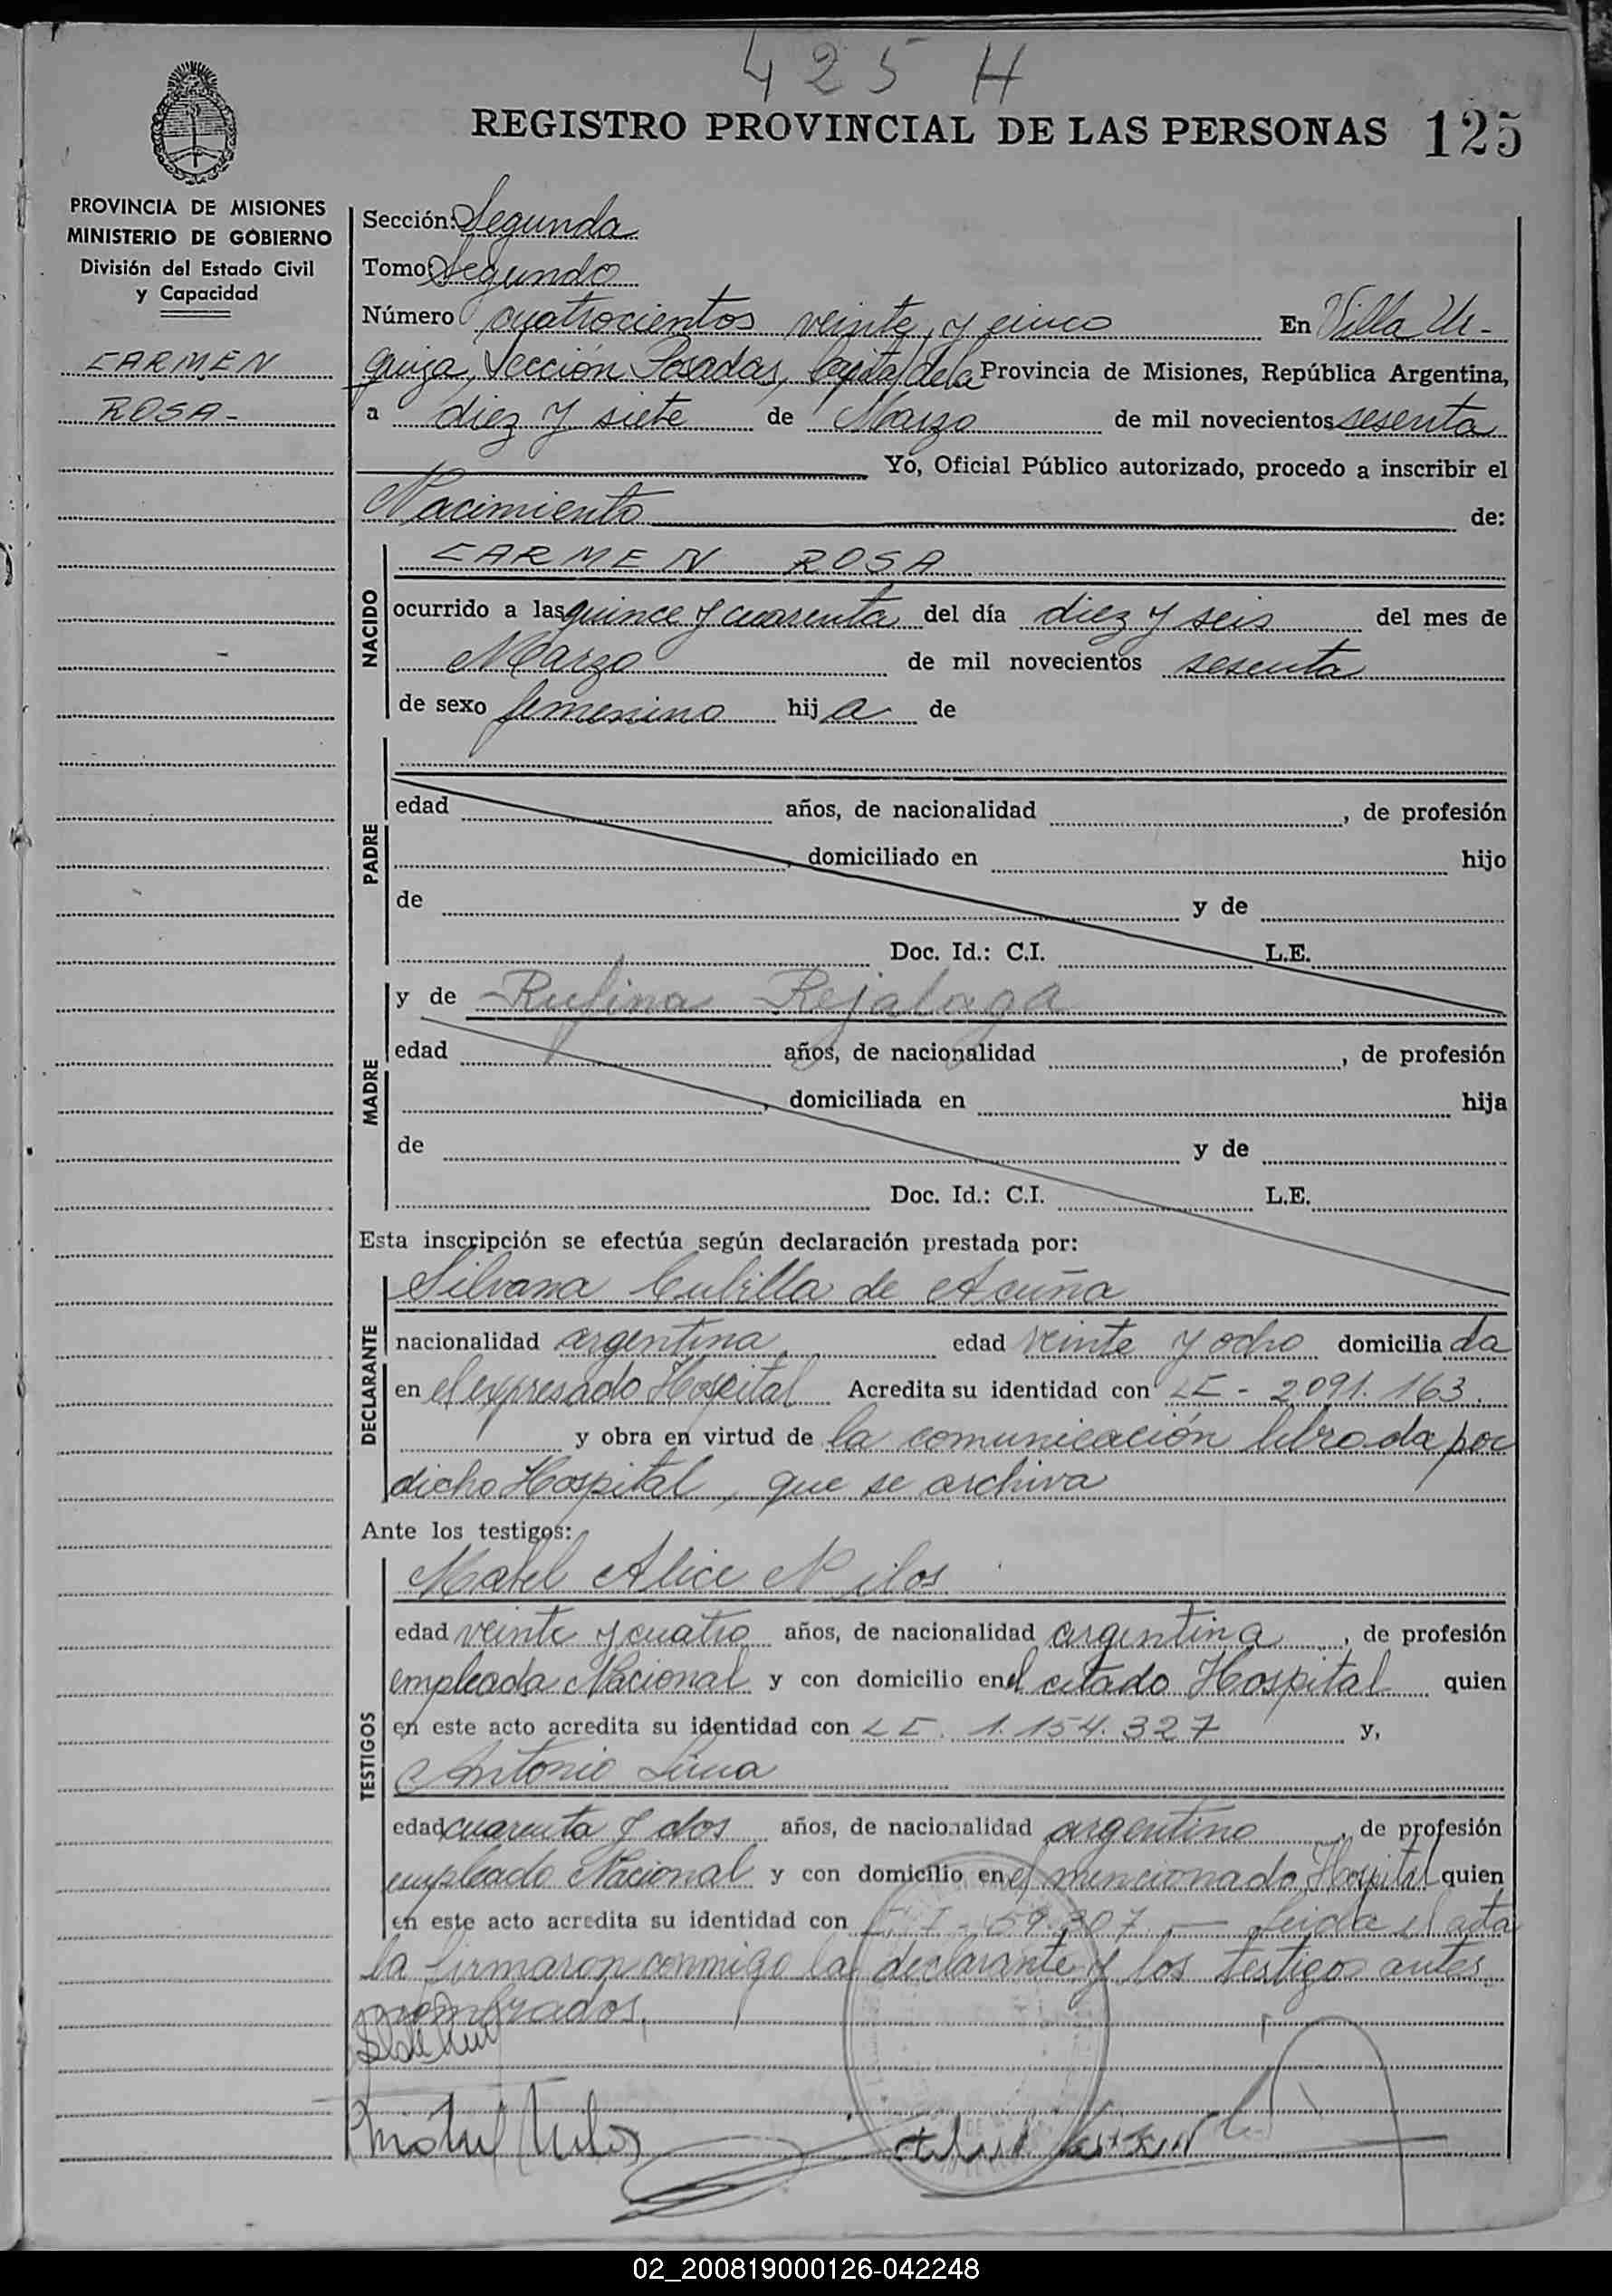 425 H
REGISTRO PROVINCIAL DE LAS PERSONAS 125
PROVINCIA DE MISIONES
MINISTERIO DE GOBIERNO
División del Estado Civil
y Capacidad
CARMEN
ROSA-
Sección: Segunda
Tomo: Segundo
Número cuatrocientos veinte y cinco En Villa Ur-
quiza, Sección Posadas, Capital de la Provincia de Misiones, República Argentina,
a diez y siete de Marzo de mil novecientos sesenta
Yo, Oficial Público autorizado, procedo a inscribir el
Nacimiento de:
NACIDO
CARMEN ROSA
ocurrido a las quince y cuarenta del día diez y seis del mes de
Marzo de mil novecientos sesenta
de sexo femenino hija de
PADRE
edad años, de nacionalidad , de profesión
, domiciliado en hijo
de y de
Doc. Id.: C.I. L.E.
MADRE
y de Rufina Rejalaga
edad años, de nacionalidad , de profesión
, domiciliada en hija
de y de
Doc. Id.: C.I. L.E.
Esta inscripción se efectúa según declaración prestada por:
DECLARANTE
Silvana Cubilla de Acuña
nacionalidad argentina edad veinte y ocho domiciliada
en el expresado Hospital Acredita su identidad con LE - 2091.163.
y obra en virtud de la comunicación librada por
dicho Hospital, que se archiva
Ante los testigos:
TESTIGOS
Mabel Alice Nilos
edad veinte y cuatro años, de nacionalidad argentina, de profesión
empleada Nacional y con domicilio en el citado Hospital quien
en este acto acredita su identidad con LE. 1.154.327 y,
Antonio Luna
edad cuarenta y dos años, de nacionalidad argentino, de profesión
empleado Nacional y con domicilio en el mencionado Hospital quien
en este acto acredita su identidad con 59.307.- Leida el acta
la firmaron conmigo la declarante y los testigos antes
nombrados.
02_200819000126-042248